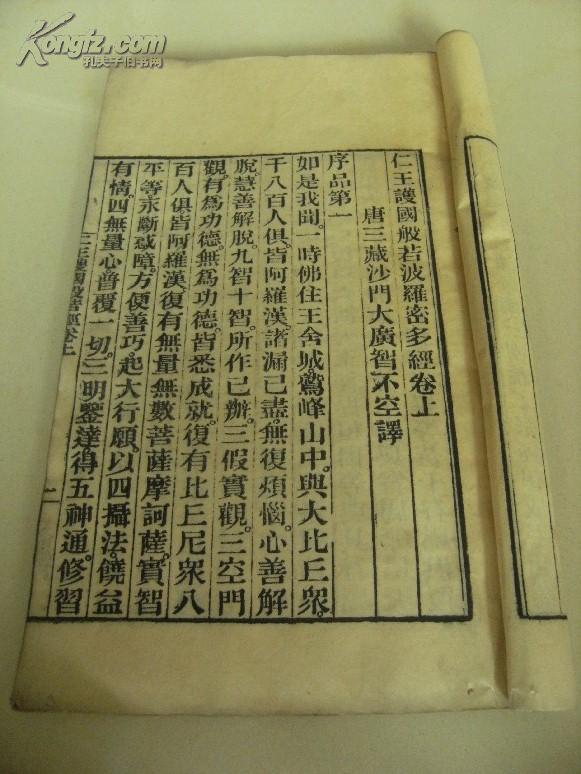 Kongfz.com
孔夫子旧书网
仁王護國般若波羅密多經卷上
唐三藏沙門大廣智不空譯
序品第一
如是我聞。一時佛住王舍城鷲峰山中。與大比丘衆。
千八百人俱。皆阿羅漢。諸漏已盡。無復煩惱。心善解
脫。慧善解脫。九智十智。所作已辦。三假實觀。三空門
觀。有爲功德。無爲功德。皆悉成就。復有比丘尼衆八
百人俱。皆阿羅漢。復有無量無數菩薩摩訶薩。實智
平等。永斷惑障。方便善巧。起大行願。以四攝法。饒益
有情。四無量心。普覆一切。三明鑒達。得五神通。修習
仁王護國般若經卷上